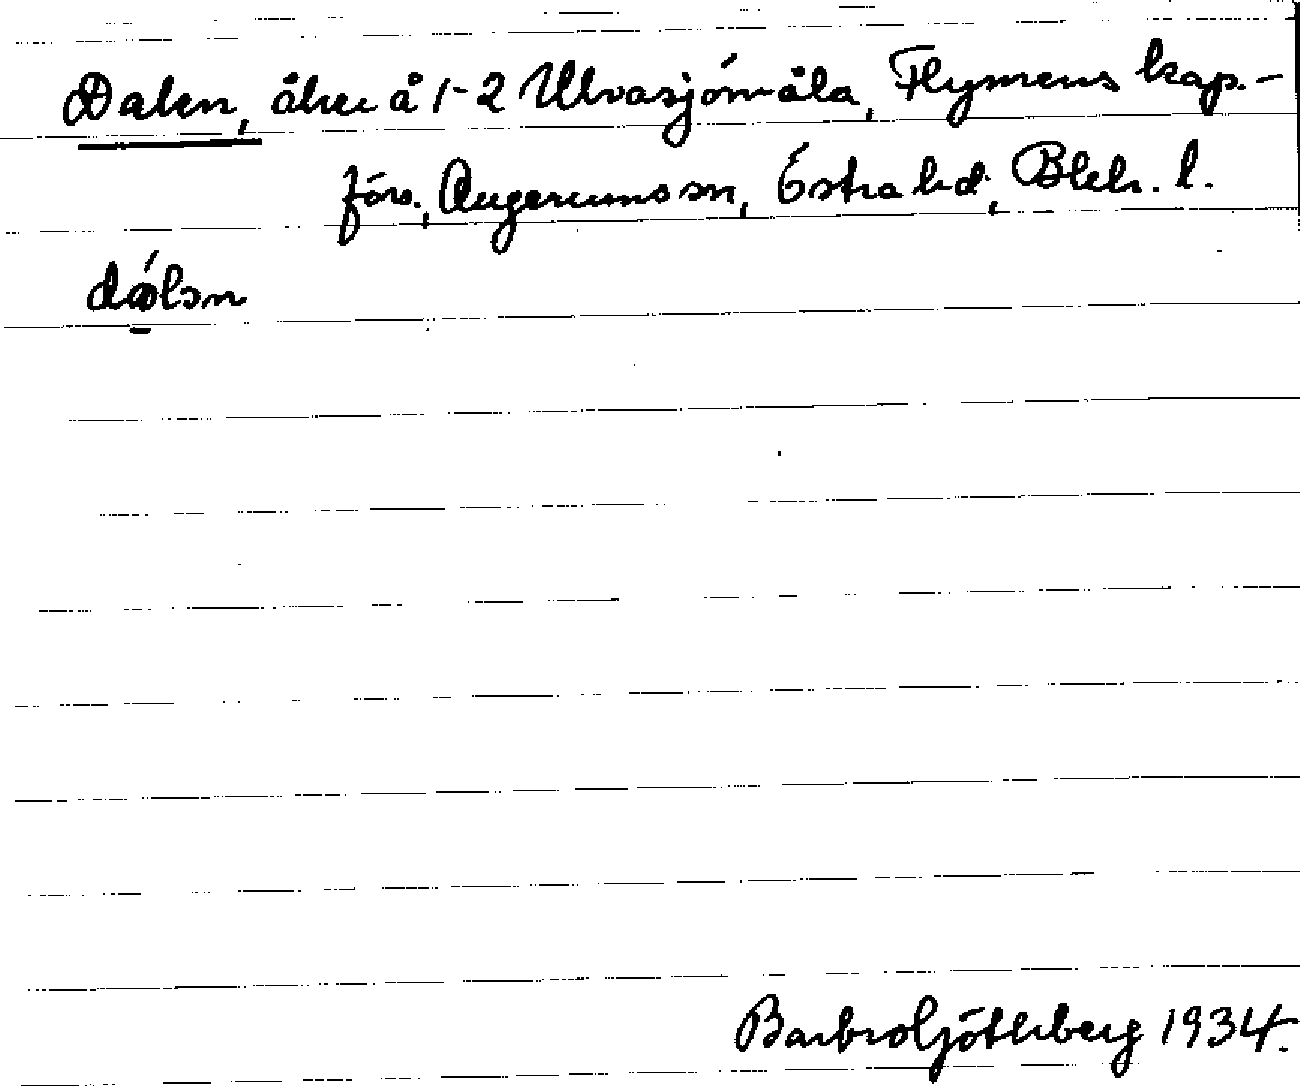 Dalen, åker å 1-2 Ulvasjömåla, Flymens kap.-
förs., Augerums sn, Östra hd, Blek. l.
Barbro Götherberg 1934.